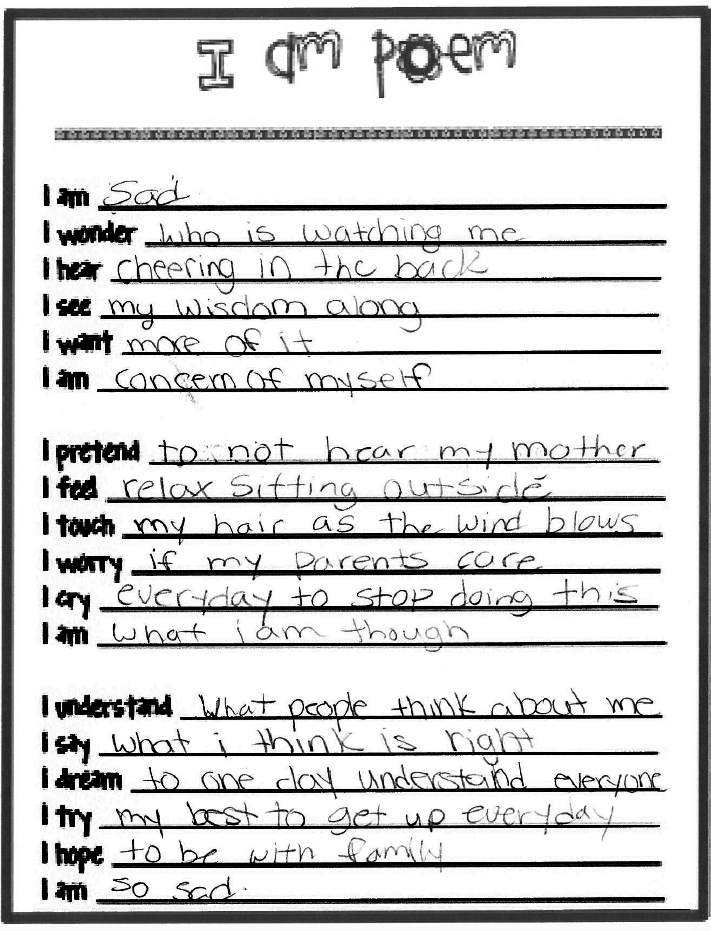 I am poem
I am Sad
I wonder who is watching me
I hear cheering in the back
I see my wisdom along
I want more of it
I am concern of myself
I pretend to not hear my mother
I feel relax sitting outside
I touch my hair as the wind blows
I worry if my parents care
I cry everyday to stop doing this
I am what i am though
I understand what people think about me
I say what i think is right
I dream to one day understand everyone
I try my best to get up everyday
I hope to be with family
I am so sad.